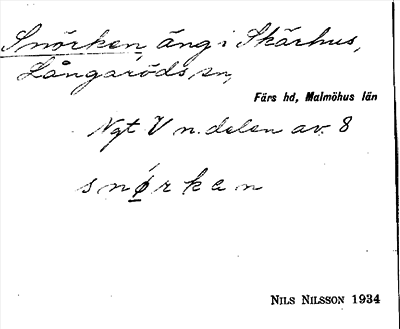 Snörken, äng i Skärhus,
Långaröds sn,
Färs hd, Malmöhus län
Ngt V n. delen av 8
snørken
NILS NILSSON 1934